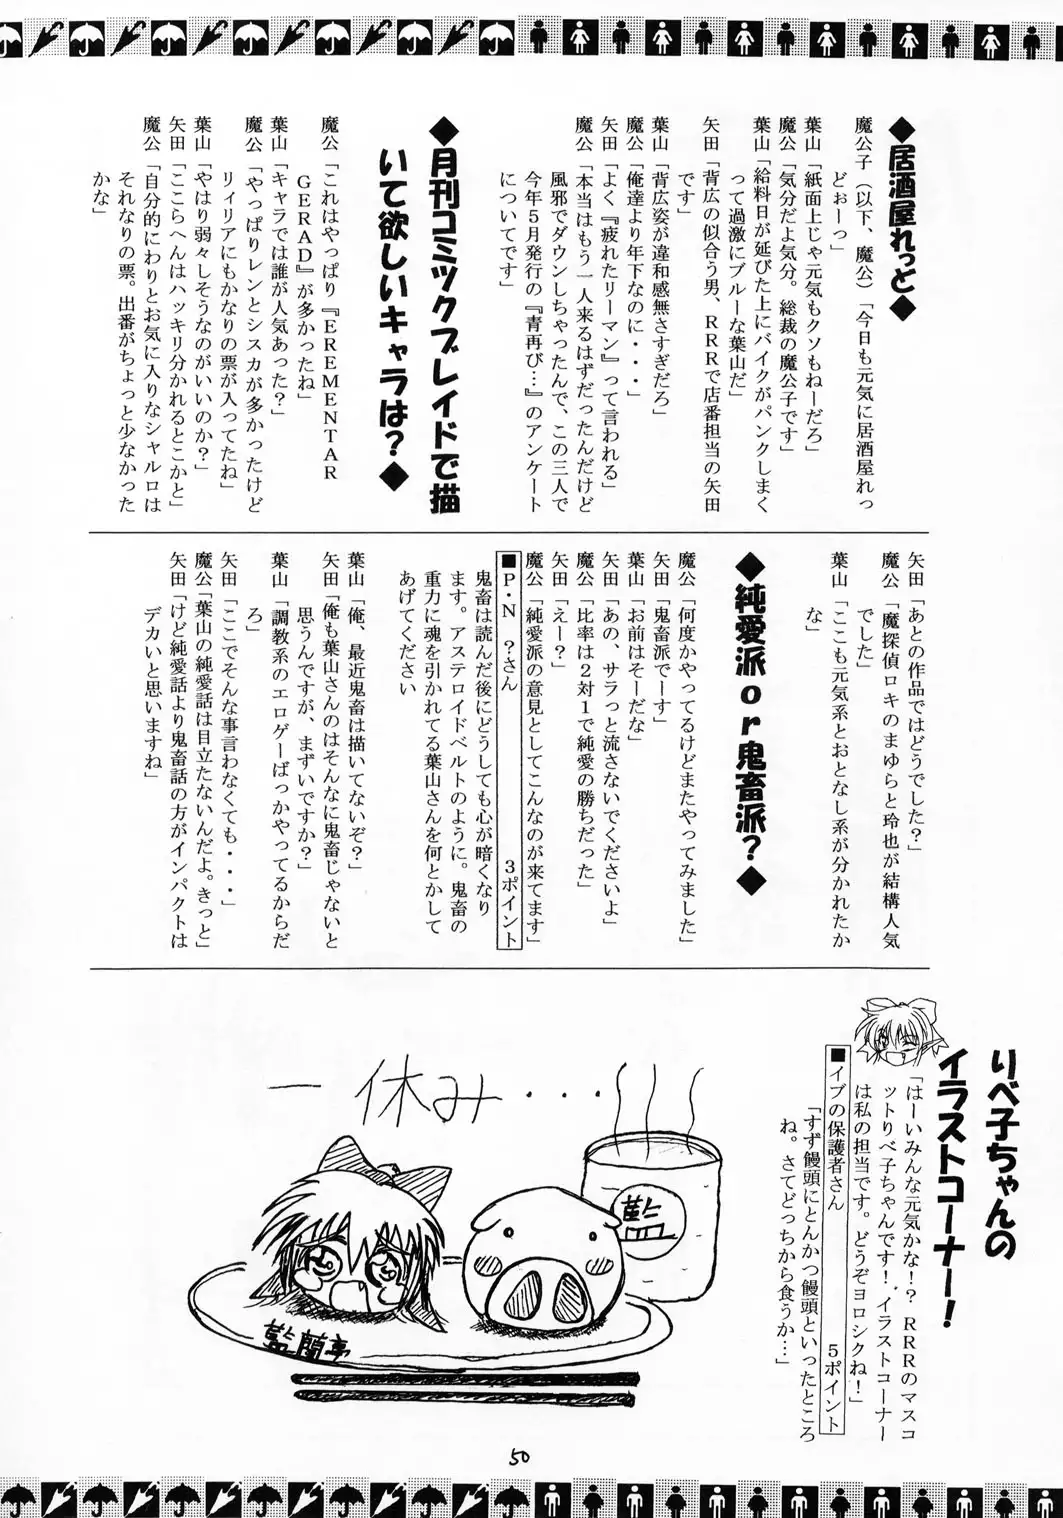 ◆居酒屋れっど◆
魔公子（以下、魔公）「今日も元気に居酒屋れっ
どぉーっ」
葉山「紙面上じゃ元気もクソもねーだろ」
魔公「気分だよ気分。総裁の魔公子です」
葉山「給料日が延びた上にバイクがパンクしまく
って過激にブルーな葉山だ」
矢田「背広の似合う男、ＲＲＲで店番担当の矢田
です」
葉山「背広姿が違和感無さすぎだろ」
魔公「俺達より年下なのに・・・」
矢田「よく『疲れたリーマン』って言われる」
魔公「本当はもう一人来るはずだったんだけど
風邪でダウンしちゃったんで、この三人で
今年５月発行の『青再び…』のアンケート
についてです」
◆月刊コミックブレイドで描
いて欲しいキャラは？◆
魔公「これはやっぱり『ＥＲＥＭＥＮＴＡＲ
ＧＥＲＡＤ』が多かったね」
葉山「キャラでは誰が人気あった？」
魔公「やっぱりレンとシスカが多かったけど
リィリアにもかなりの票が入ってたね」
葉山「やはり弱々しそうなのがいいのか？」
矢田「ここらへんはハッキリ分かれるとこかと」
魔公「自分的にわりとお気に入りなシャルロは
それなりの票。出番がちょっと少なかった
かな」
矢田「あとの作品ではどうでした？」
魔公「魔探偵ロキのまゆらと玲也が結構人気
でした」
葉山「ここも元気系とおとなし系が分かれたか
な」
◆純愛派ｏｒ鬼畜派？◆
魔公「何度かやってるけどまたやってみました」
矢田「鬼畜派でーす」
葉山「お前はそーだな」
矢田「あの、サラっと流さないでくださいよ」
魔公「比率は２対１で純愛の勝ちだった」
矢田「えー？」
魔公「純愛派の意見としてこんなのが来てます」
■Ｐ・Ｎ　？さん　３ポイント
鬼畜は読んだ後にどうしても心が暗くなり
ます。アステロイドベルトのように。鬼畜の
重力に魂を引かれてる葉山さんを何とかして
あげてください
葉山「俺、最近鬼畜は描いてないぞ？」
矢田「俺も葉山さんのはそんなに鬼畜じゃないと
思うんですが、まずいですか？」
葉山「調教系のエロゲーばっかやってるからだ
ろ」
矢田「ここでそんな事言わなくても・・・」
魔公「葉山の純愛話は目立たないんだよ。きっと」
矢田「けど純愛話より鬼畜話の方がインパクトは
デカいと思いますね」
りべ子ちゃんの
イラストコーナー！
「はーいみんな元気かな！？ＲＲＲのマスコ
ットりべ子ちゃんです！．イラストコーナー
は私の担当です。どうぞヨロシクね！」
■イブの保護者さん　５ポイント
「すず饅頭にとんかつ饅頭といったところ
ね。さてどっちから食うか…」
一休み・・・
藍
藍蘭亭
50